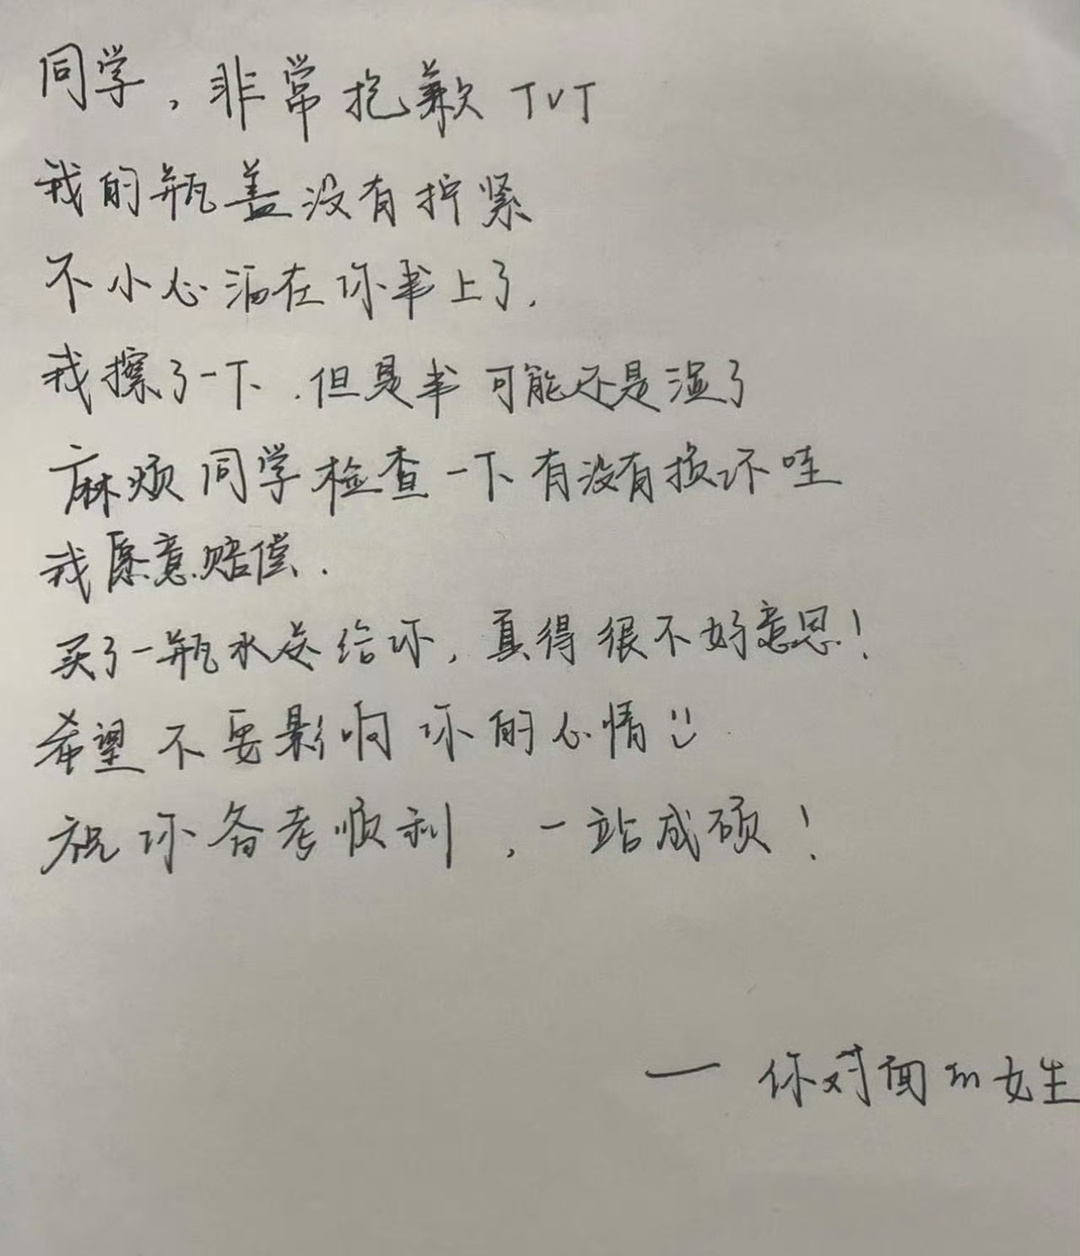 同学，非常抱歉 TVT
我的瓶盖没有拧紧
不小心洒在你书上了.
我擦了一下.但是书可能还是湿了
麻烦同学检查一下有没有损坏哇
我愿意赔偿.
买了一瓶水送给你,真得很不好意思!
希望不要影响你的心情
祝你备考顺利,一站成硕!
— 你对面的女生